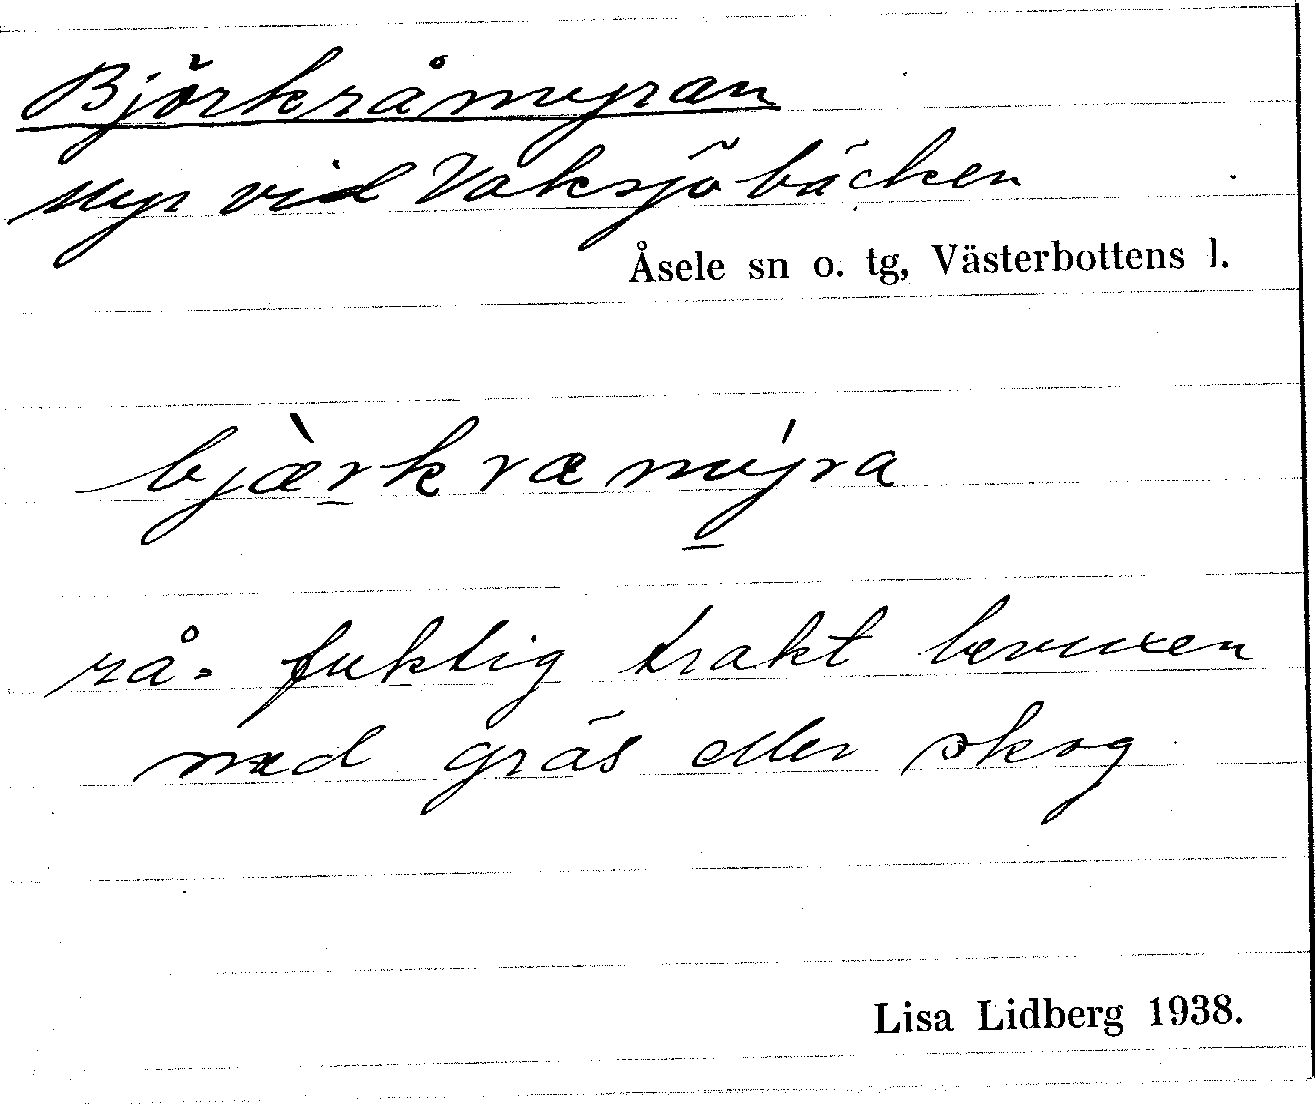 Björkråmyran
myr vid Vaksjöbäcken
Åsele sn o. tg, Västerbottens l.
bjæ̀r̲kræmý̲ra
rå = fuktig trakt bevuxen
med gräs eller skog
Lisa Lidberg 1938.